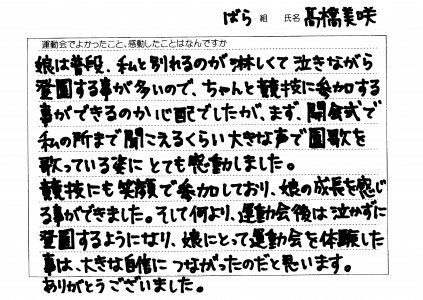 ばら 組 氏名 髙橋美咲
運動会でよかったこと、感動したことはなんですか
娘は普段、私と別れるのが淋しくて泣きながら
登園する事が多いので、ちゃんと競技に参加する
事ができるのか心配でしたが、まず、開会式で
私の所まで聞こえるくらい大きな声で園歌を
歌っている姿にとても感動しました。
競技にも笑顔で参加しており、娘の成長を感じ
る事ができました。そして何より、運動会後は泣かずに
登園するようになり、娘にとって運動会を体験した
事は、大きな自信につながったのだと思います。
ありがとうございました。